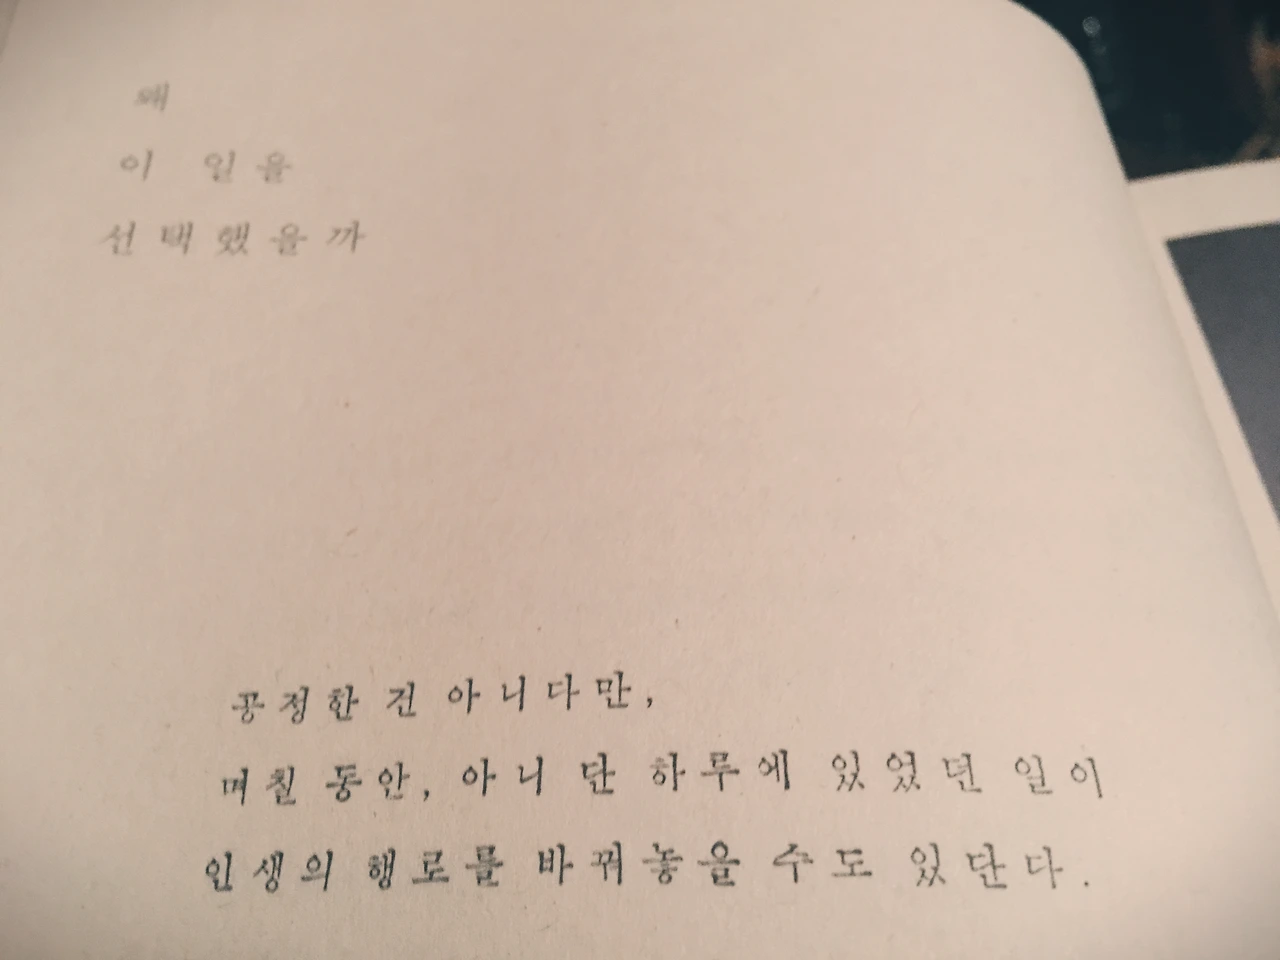 왜
이 일을
선택했을까
공정한 건 아니다만,
며칠 동안, 아니 단 하루에 있었던 일이
인생의 행로를 바꿔놓을 수도 있단다.